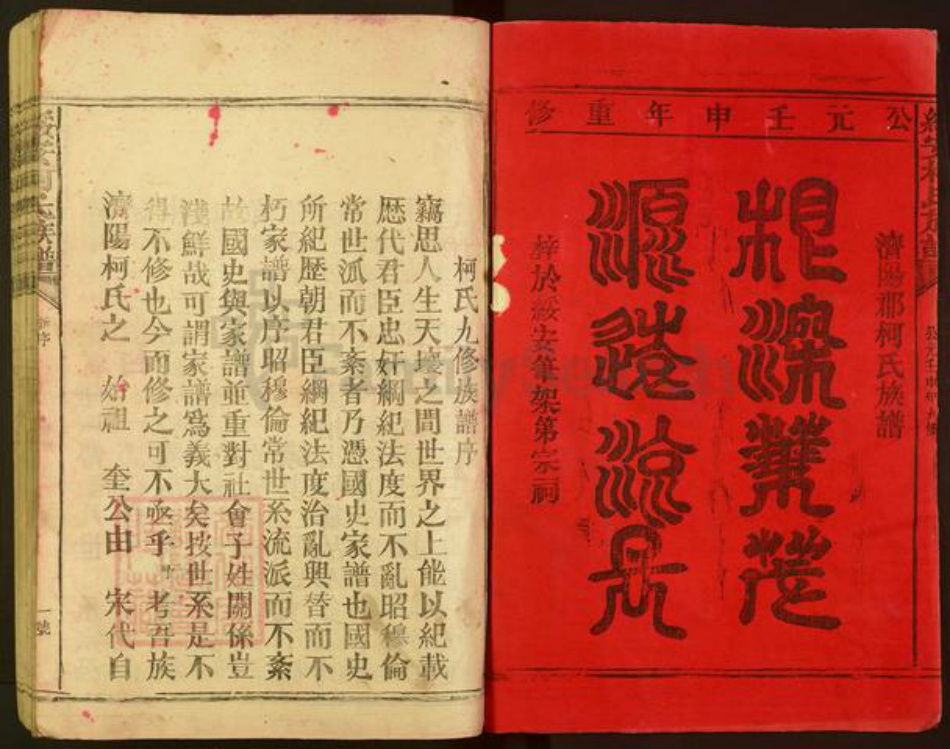 公元壬申年重修
濟陽郡柯氏族譜
根深葉茂
源遠流長
梓於綏安筆架第宗祠
柯氏九修族譜序
竊思人生天壤之間世界之上能以紀載
歷代君臣忠奸綱紀法度而不亂昭穆倫
常世派而不紊者乃憑國史家譜也國史
所紀歷朝君臣綱紀法度治亂興替而不
朽家譜以序昭穆倫常世系流派而不紊
故國史與家譜並重對社會子姓關係豈
淺鮮哉可謂家譜爲義大矣按世系是不
得不修也今而修之可不亟乎 考吾族
濟陽柯氏之 始祖 奎公由 宋代自
綏安柯氏族譜
序
一號